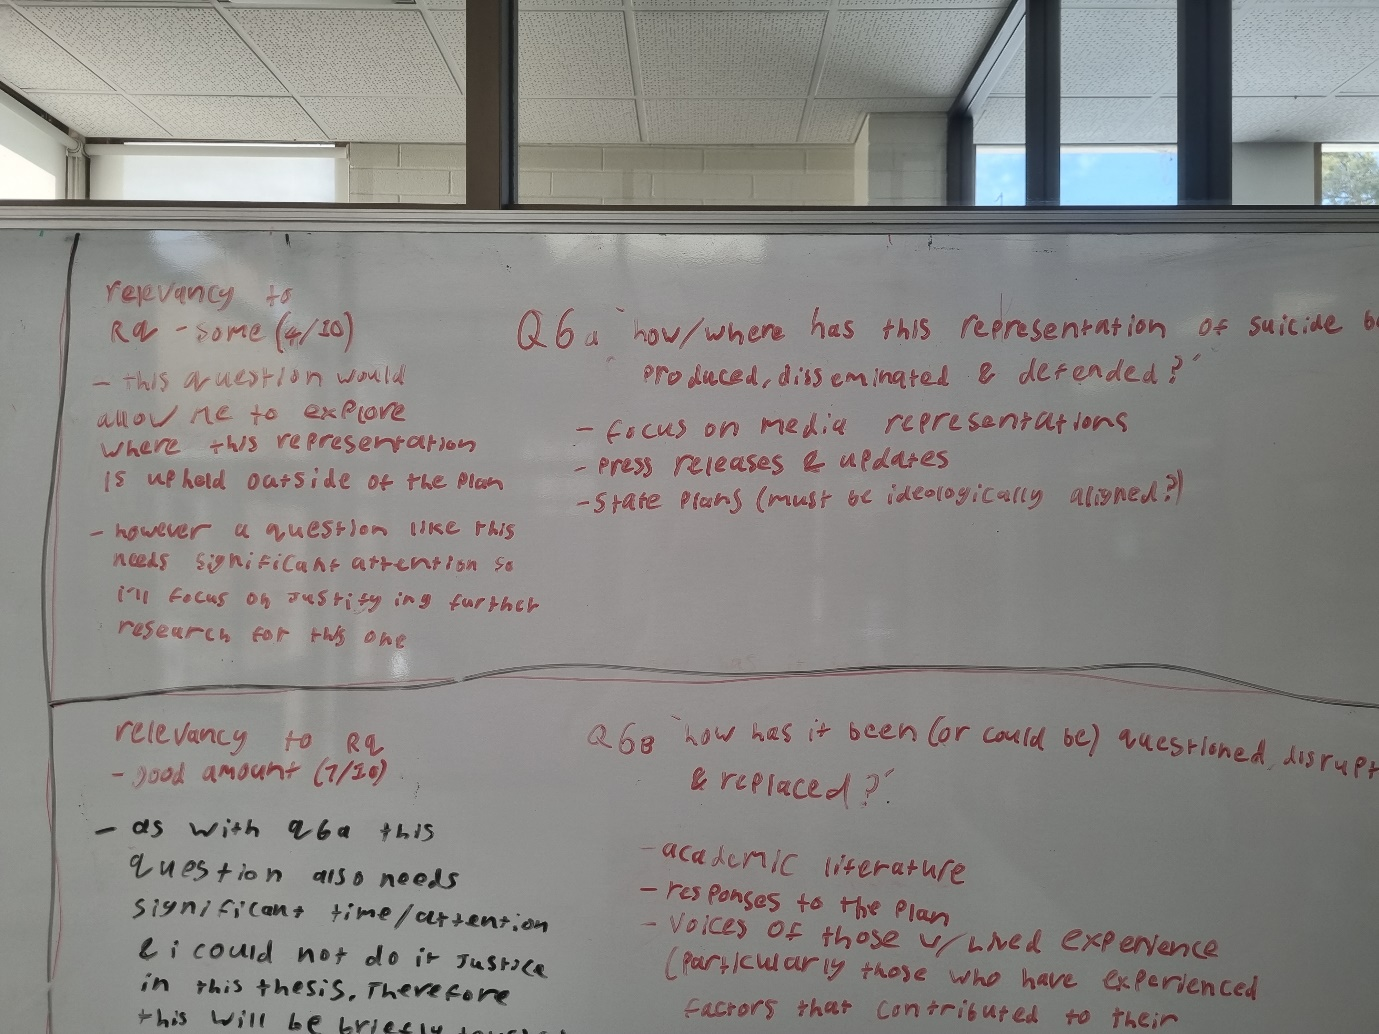 relevancy to
RQ - some (4/10)
- this question would
allow me to explore
where this representation
is upheld outside of the plan
- however a question like this
needs significant attention so
i'll focus on justifying further
research for this one
Q6a "how/where has this representation of suicide
produced, disseminated & defended?"
- focus on media representations
- press releases & updates
- state plans (must be ideologically aligned?)
relevancy to RQ
- good amount (7/10)
- as with Q6a this
question also needs
significant time/attention
& i could not do it justice
in this thesis. Therefore
this will be briefly
Q6B "how has it been (or could be) questioned, disrupt
& replaced?"
- academic literature
- responses to the plan
- voices of those w/ lived experience
(particularly those who have experienced
factors that contributed to their